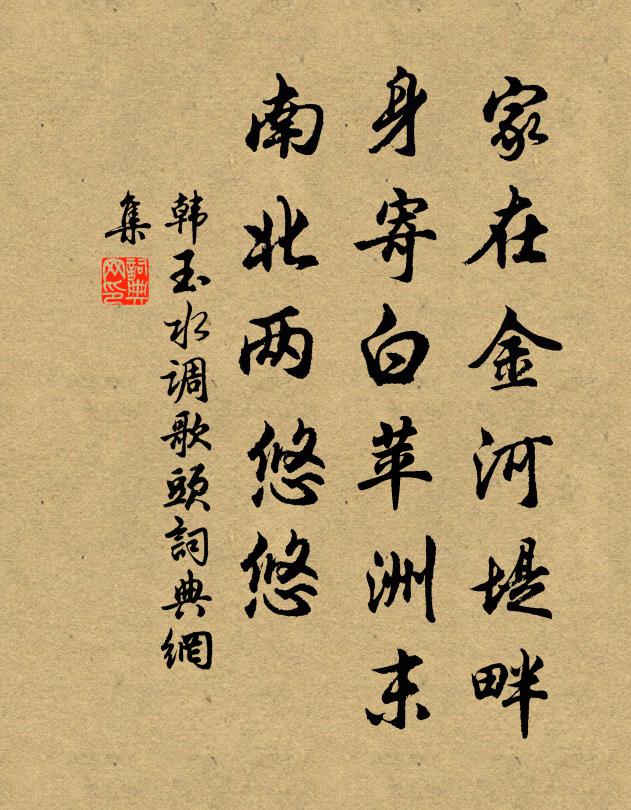 家在金河堤畔
身寄白苹洲末
南北两悠悠
韩玉水调歌头詞典網
集
詞典网印